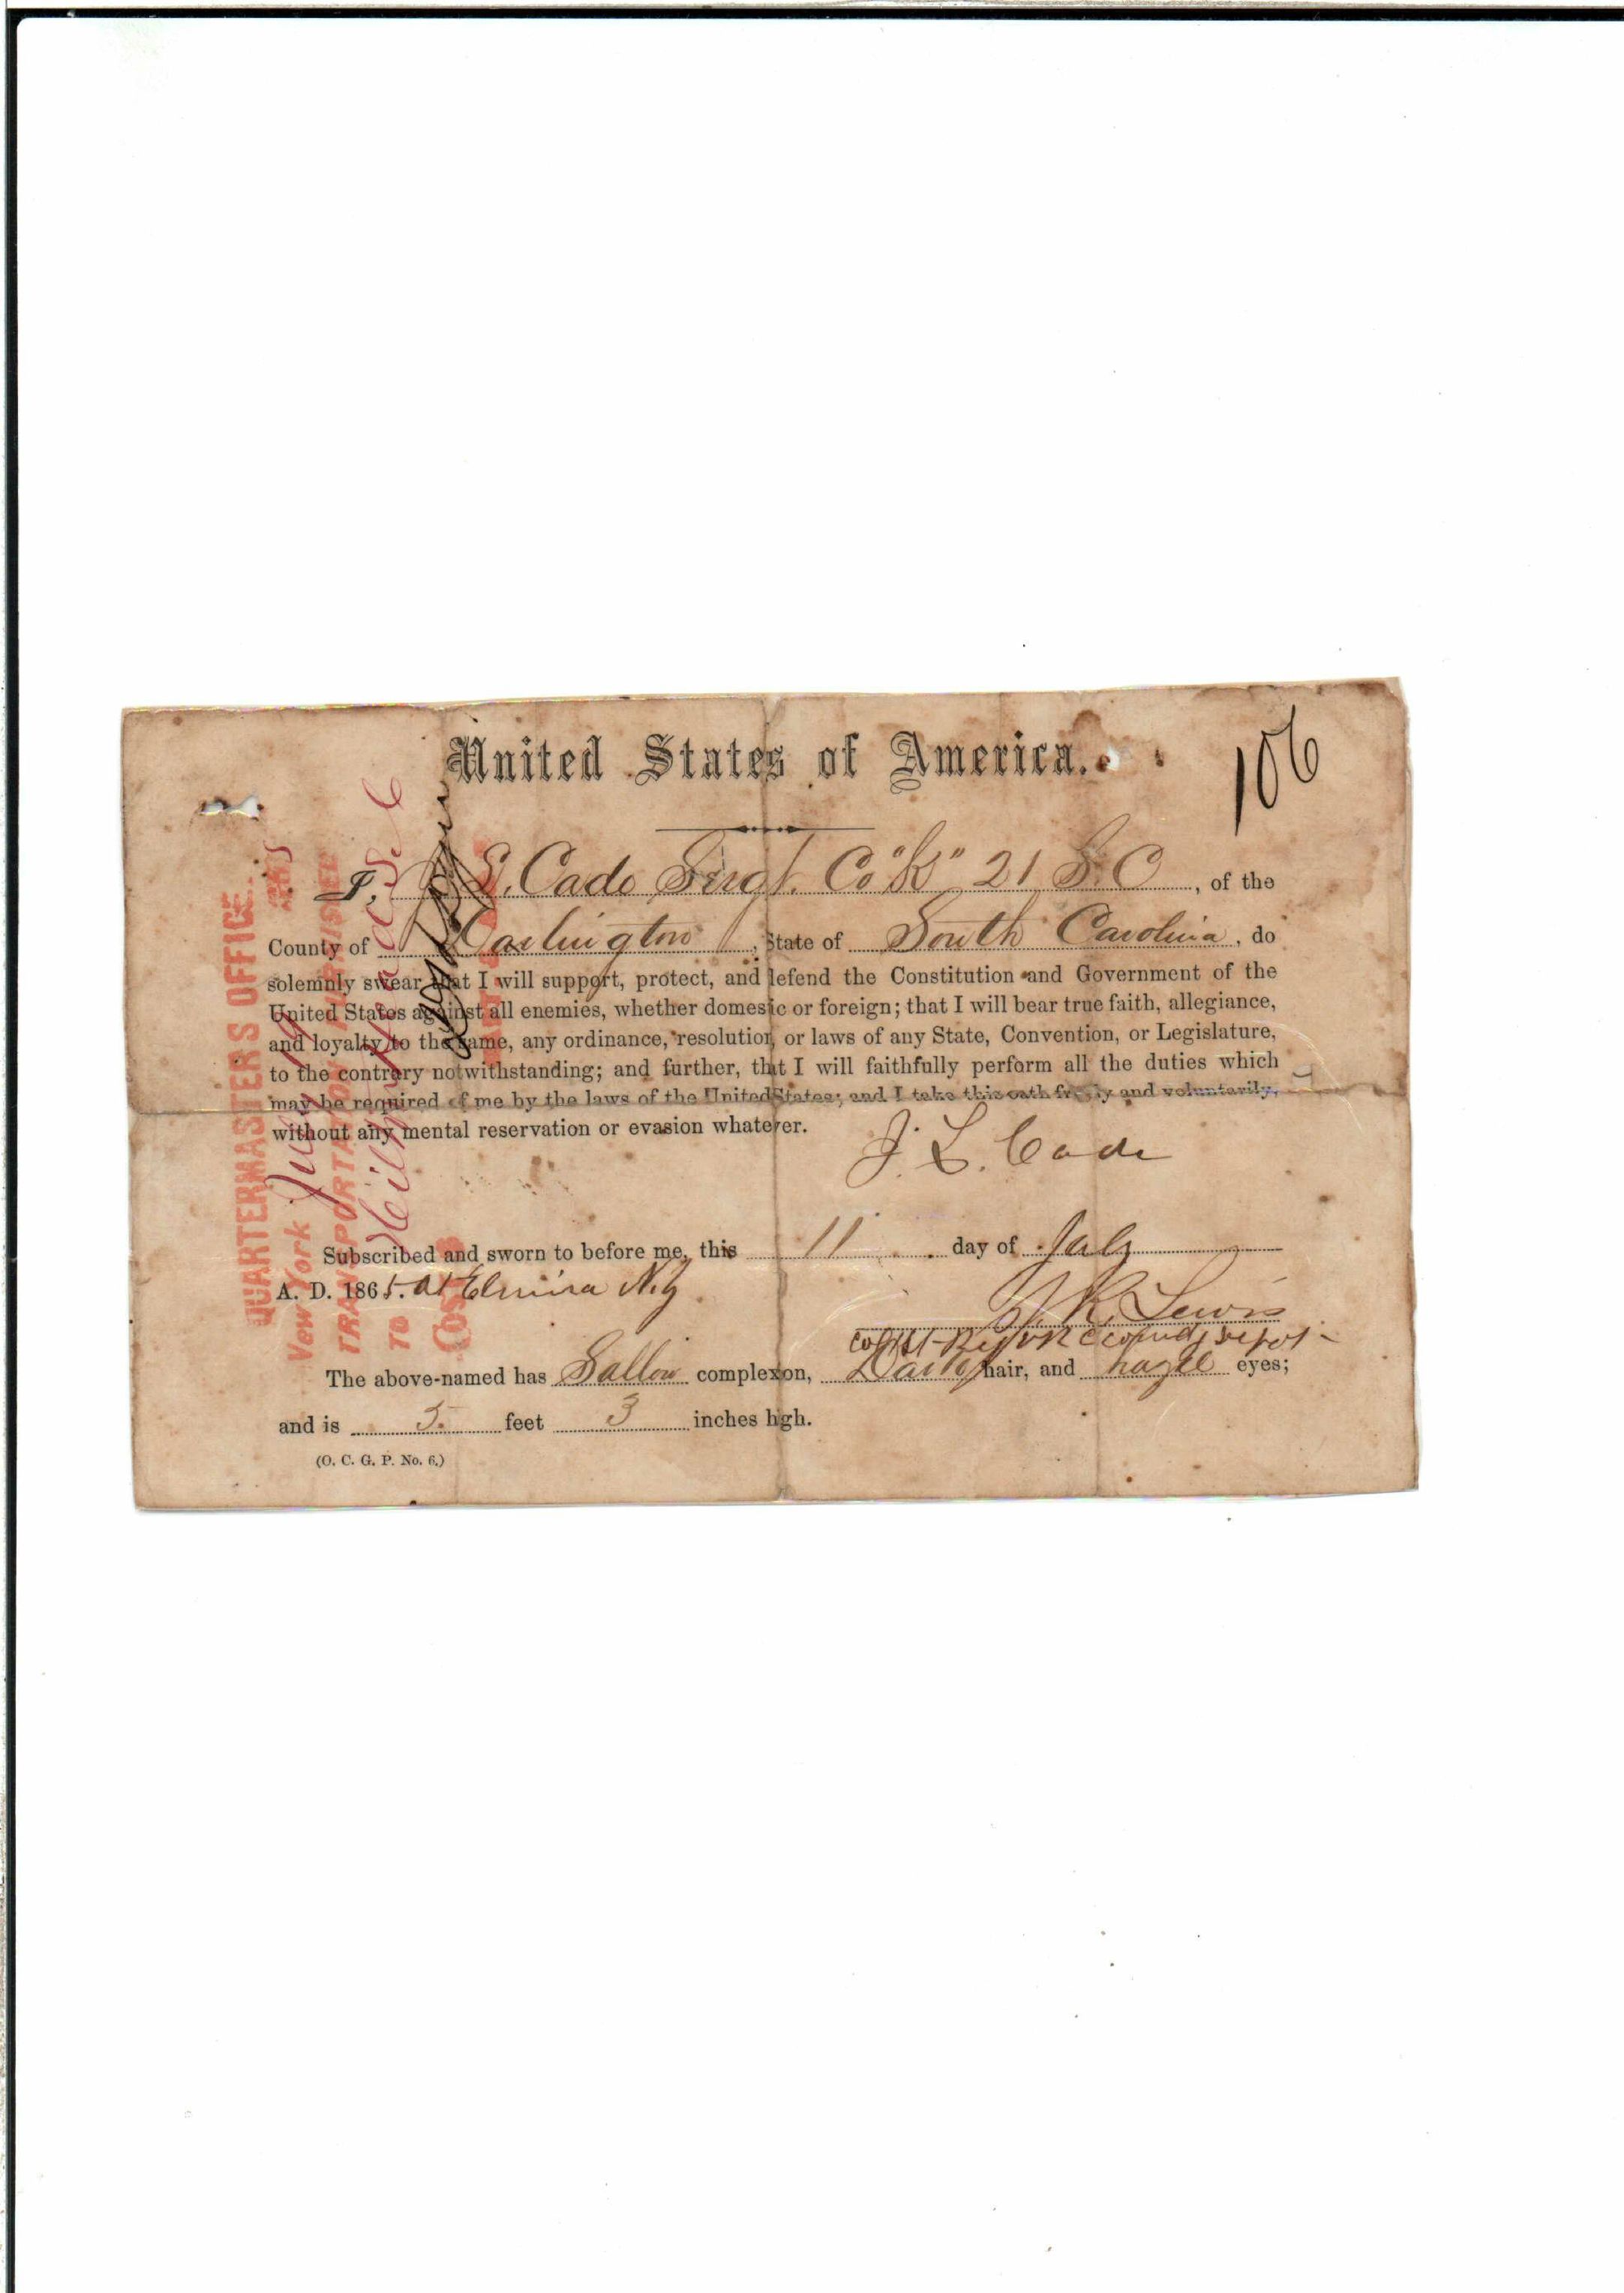 United States of America.
106
I, J. L. Cade Sergt. Co "K" 21 S. C, of the
County of Darlington, State of South Carolina, do
solemnly swear that I will support, protect, and defend the Constitution and Government of the
United States against all enemies, whether domestic or foreign; that I will bear true faith, allegiance,
and loyalty to the same, any ordinance, resolution, or laws of any State, Convention, or Legislature,
to the contrary notwithstanding; and further, that I will faithfully perform all the duties which
may be required of me by the laws of the United States; and I take this oath freely and voluntarily,
without any mental reservation or evasion whatever.
J. L. Cade
Subscribed and sworn to before me, this 11 day of July
A. D. 1865. at Elmira N.Y.
J. R. Lewis
Col 1st Regt V R C comdg Depot
The above-named has Sallow complexion, Dark hair, and hazel eyes;
and is 5 feet 3 inches high.
(O. C. G. P. No. 6.)
QUARTERMASTER'S OFFICE
New York July
TRANSPORTATION FURNISHED
TO
Cost